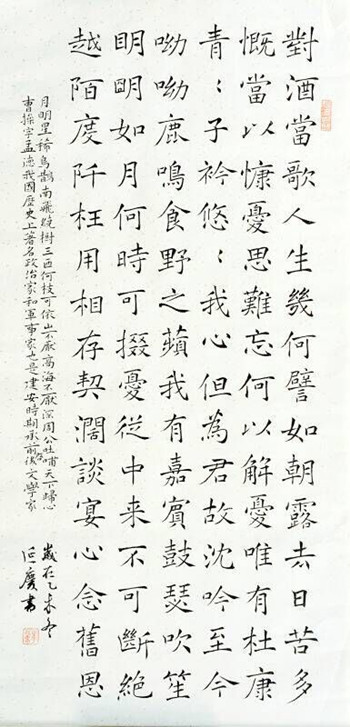 對酒當歌人生幾何譬如朝露去日苦多
慨當以慷憂思難忘何以解憂唯有杜康
青〻子衿悠〻我心但為君故沈吟至今
呦呦鹿鳴食野之蘋我有嘉賓鼓瑟吹笙
明明如月何時可掇憂從中来不可斷絕
越陌度阡枉用相存契濶談宴心念舊恩
月明星稀烏鵲南飛繞樹三匝何枝可依山不厭高海不厭深周公吐哺天下歸心
曹操字孟德我國歷史上著名政治家和軍事家也是建安時期承前後文學家
歲在乙未冬
慶書